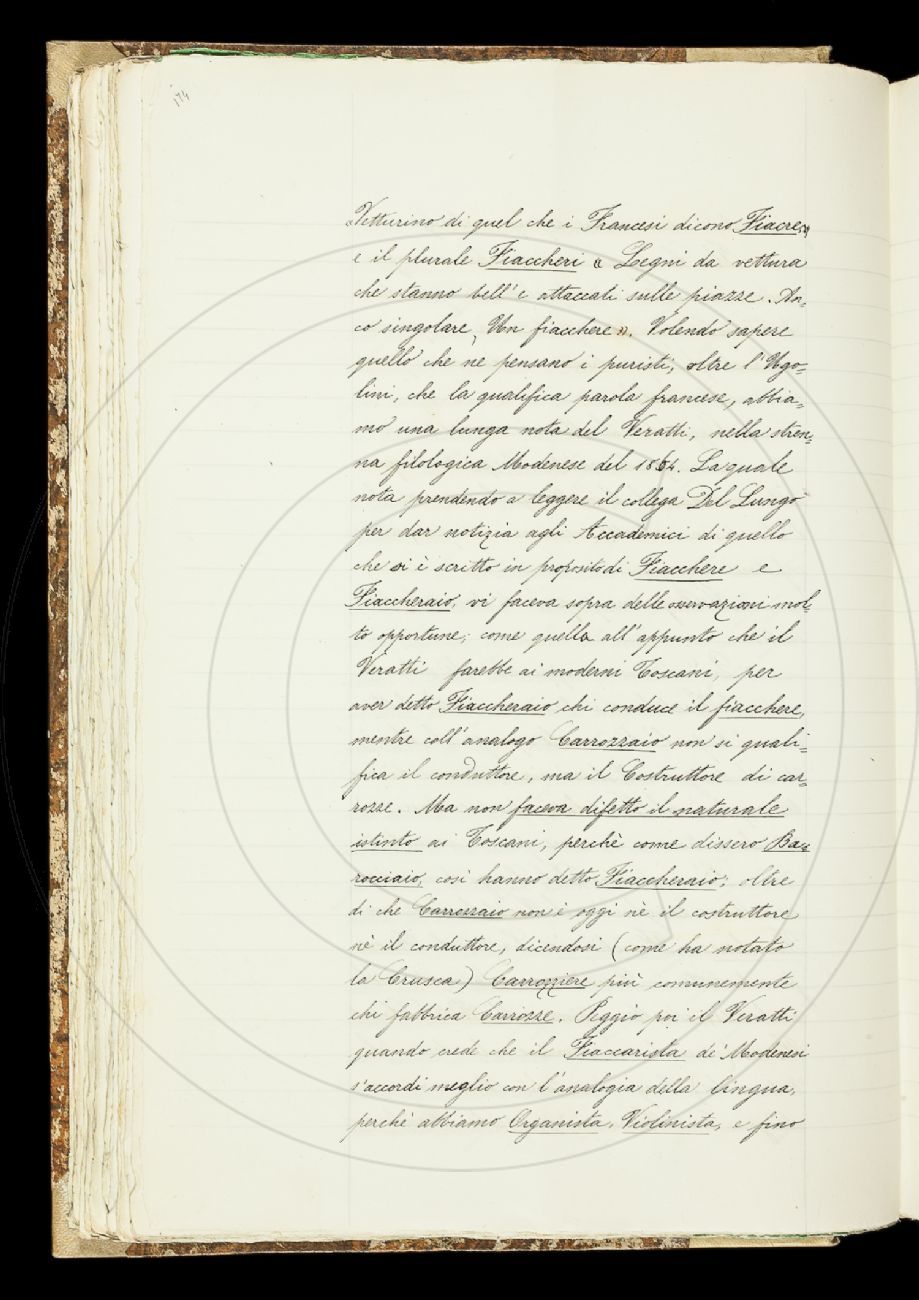 174
"Vetturino di quel che i Francesi dicono Fiacre;"
e il plurale Fiaccheri "Legni da vettura
che stanno bell'e attaccati sulle piazze. An=
co singolare, Un fiacchere". Volendo sapere
quello che ne pensano i puristi, oltre l'Ugo=
lini, che la qualifica parola francese, abbia=
mo una lunga nota del Veratti, nella stren=
na filologica Modenese del 1864. La quale
nota prendendo a leggere il collega Del Lungo
per dar notizia agli Accademici di quello
che si è scritto in proposito di Fiacchere e
Fiaccheraio, vi faceva sopra delle osservazioni mol=
to opportune; come quella all'appunto che il
Veratti farebbe ai moderni Toscani, per
aver detto Fiaccheraio chi conduce il fiacchere,
mentre coll'analogo Carrozzaio non si quali=
fica il conduttore, ma il Costruttore di car=
rozze. Ma non faceva difetto il naturale
istinto ai Toscani, perchè come dissero Ba=
rocciaio, così hanno detto Fiaccheraio; oltre
di che Carrozzaio non è oggi nè il costruttore
nè il conduttore, dicendosi (come ha notato
la Crusca) Carrozziere più comunemente
chi fabbrica Carrozze. Peggio poi il Veratti
quando crede che il Fiaccarista de' Modenesi
s'accordi meglio con l'analogia della lingua,
perchè abbiamo Organista, Violinista, e fino